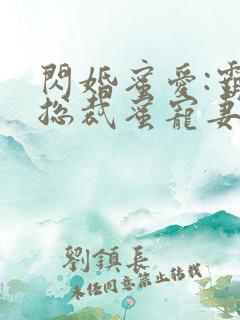 閃婚蜜愛:
總裁蜜寵妻
劉鎮長
未經同意禁止轉載